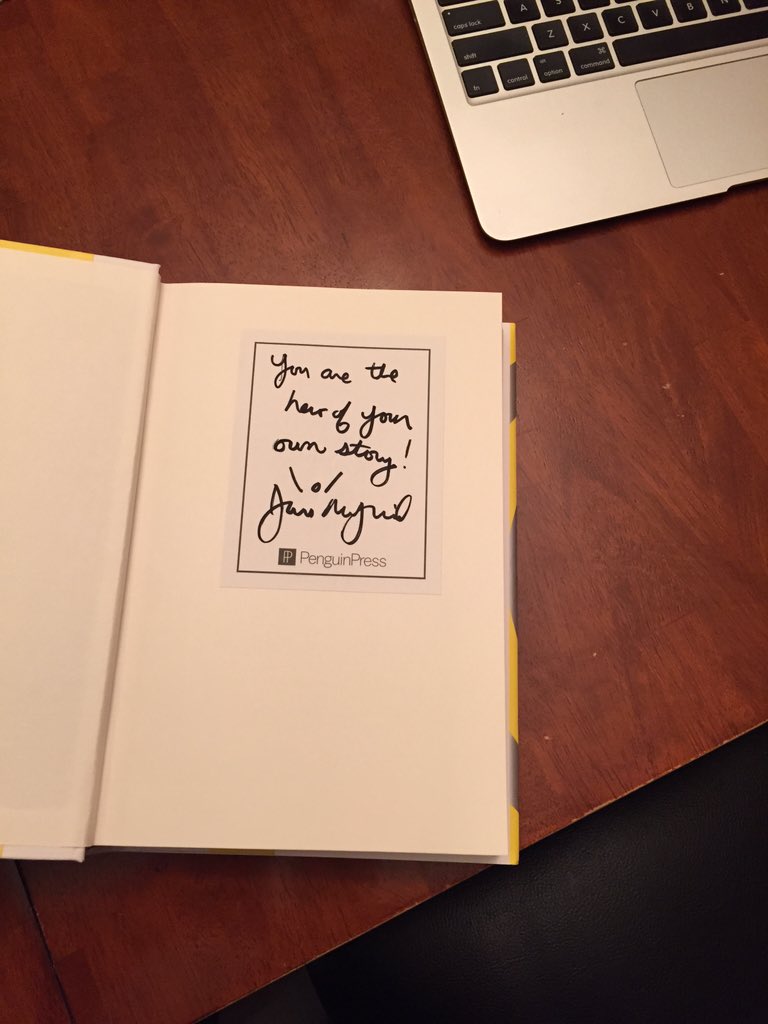 caps lock
A
S
shift
Z
X
C
V
B
N
M
fn
control
alt
option
⌘
command
You are the
hero of your
own story!
Jane McGonigal
PenguinPress